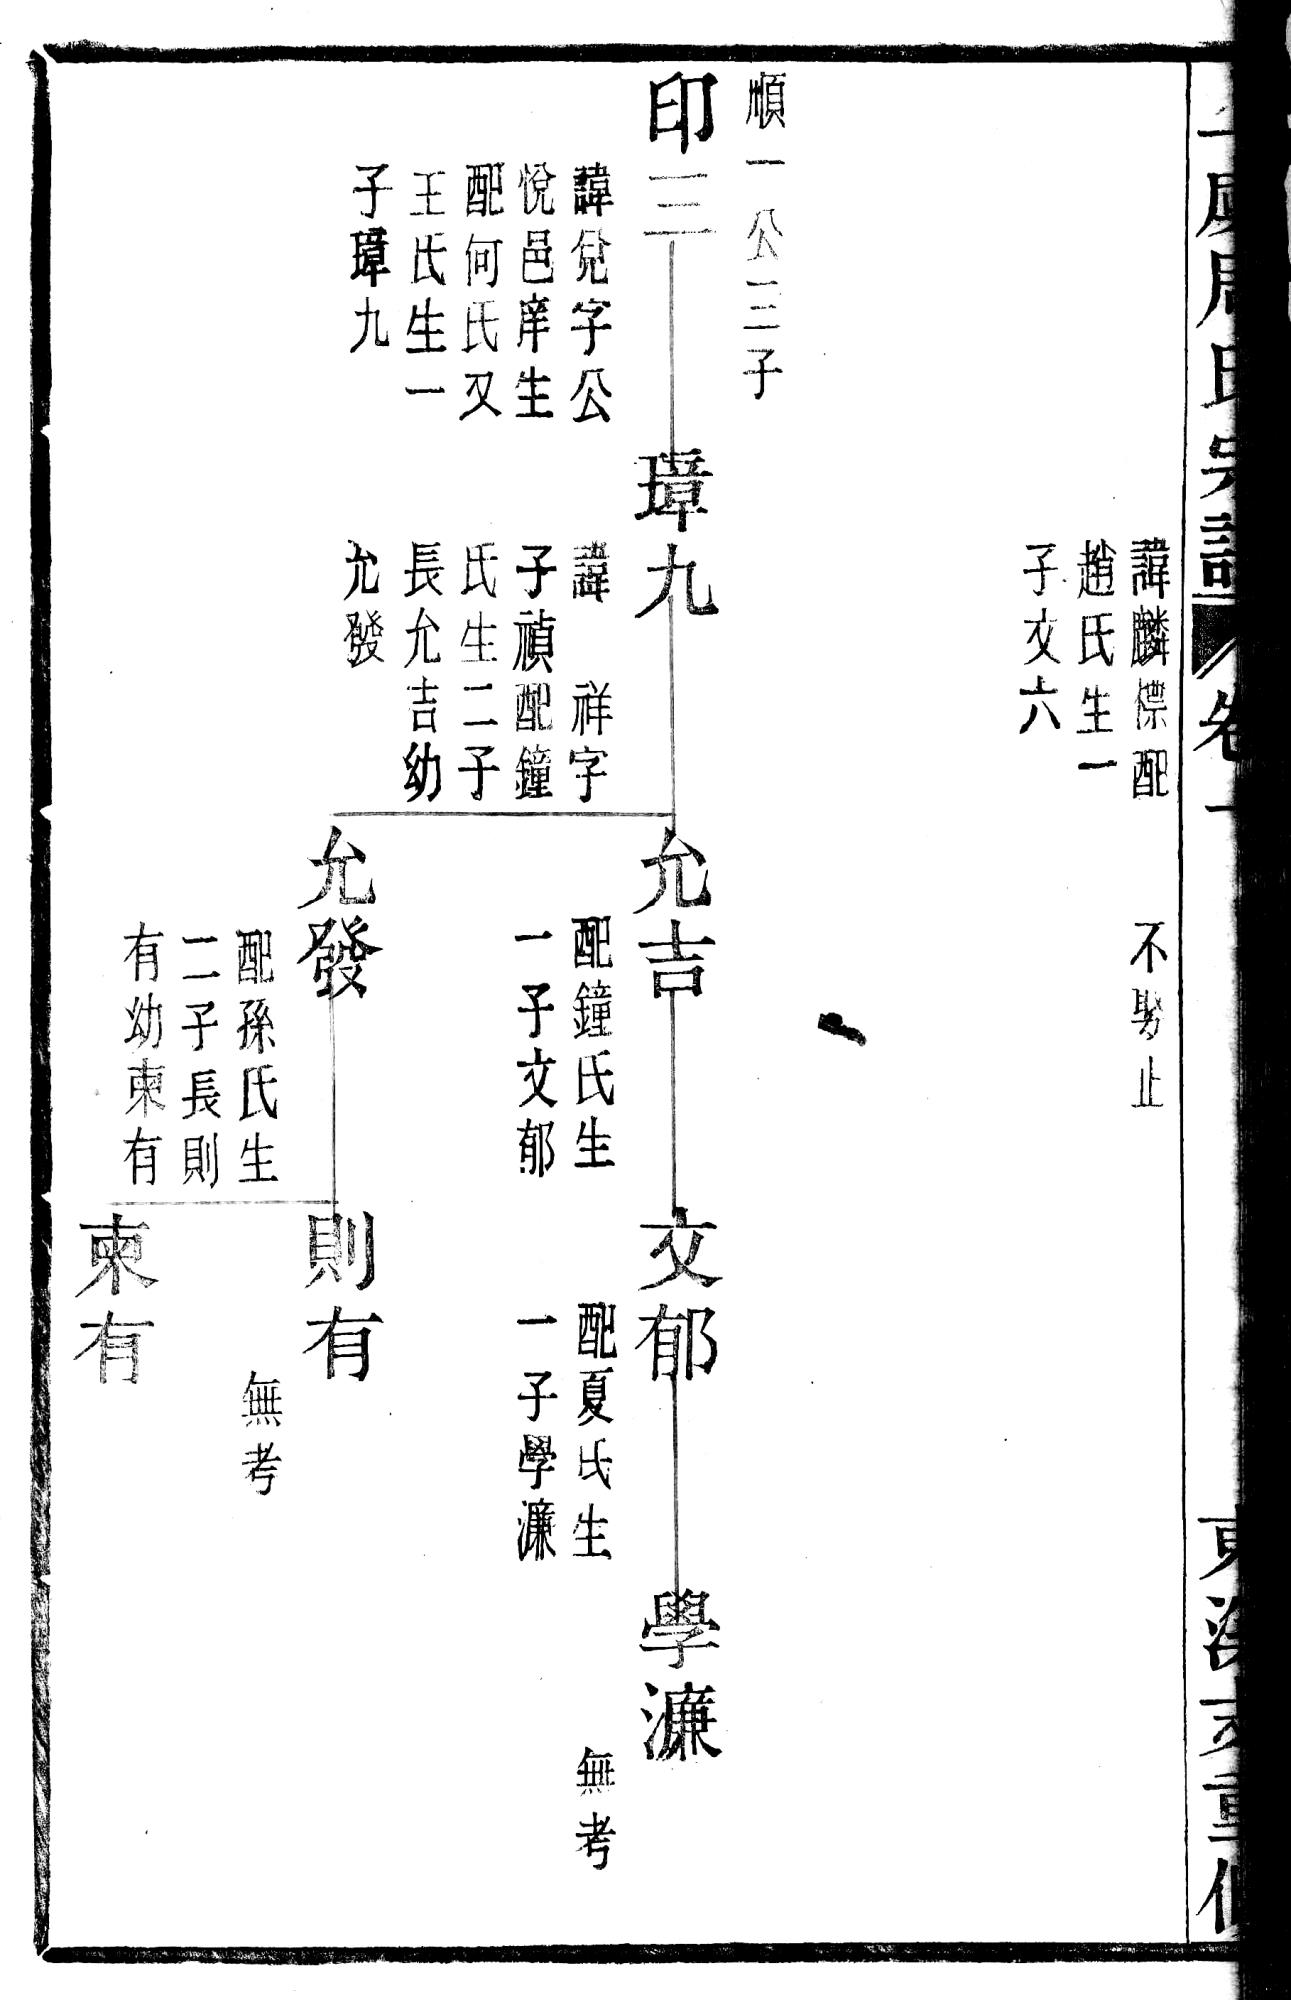 周氏宗譜
卷一
重修
諱麟慓配
趙氏生一
子文六
不娶止
順一公三子
印三
諱兌字公
悅邑庠生
配何氏又
王氏生一
子璋九
璋九
諱 祥字
子禎配鐘
氏生二子
長允吉幼
允發
允吉
配鐘氏生
一子文郁
允發
配孫氏生
二子長則
有幼柬有
文郁
配夏氏生
一子學濂
則有
無考
柬有
學濂
無考